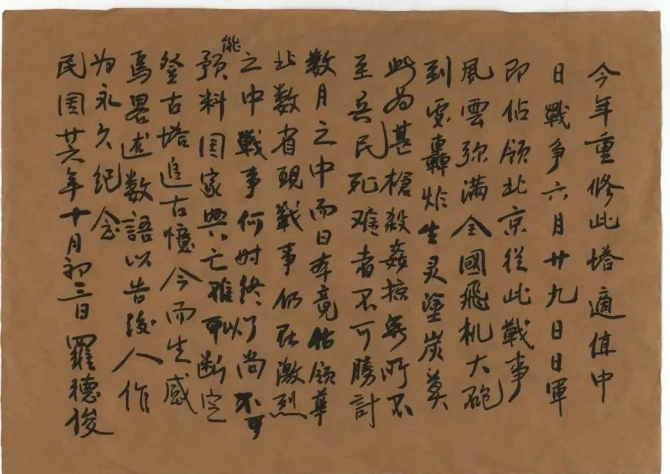 今年重修此塔適值中
日戰争六月廿九日日軍
即佔領北京從此戰事
風雲弥滿全國飛机大砲
到處轟炸生灵塗炭莫
此为甚槍殺姦掠無所不
至兵民死难者不可勝計
数月之中而日本竟佔領華
北数省現戰事仍在激烈
之中戰事何时終了尚不可
能預料国家興亡难以断定
登古塔追古憶今而生感
焉畧述数語以告後人作
为永久紀念
民国廿六年十月初三日 羅德俊